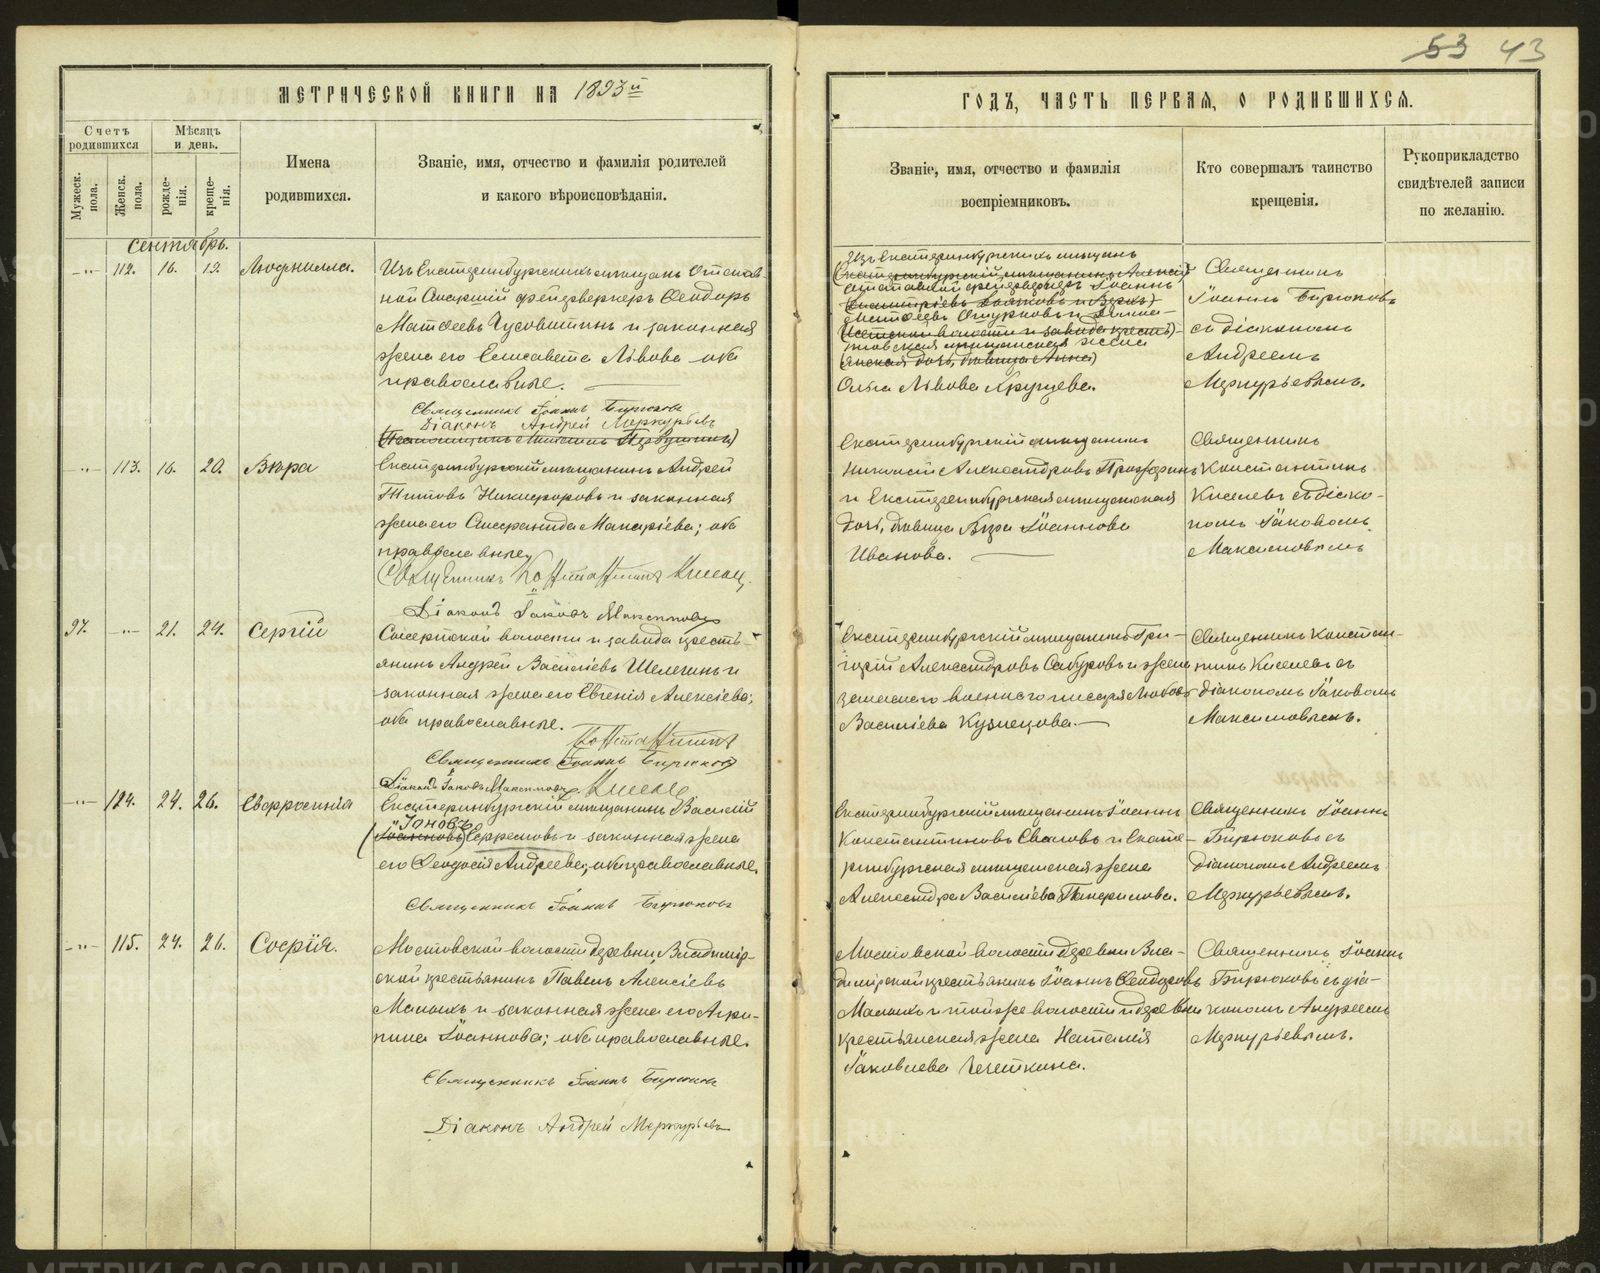 53 43
МЕТРИЧЕСКОЙ КНИГИ НА 1893й
ГОДЪ, ЧАСТЬ ПЕРВАЯ, О РОДИВШИХСЯ.
Счетъ родившихся
Мужеск. пола.
Женск. пола.
Мѣсяцъ и день.
рожде-нія.
креще-нія.
Имена
родившихся.
Званіе, имя, отчество и фамилія родителей
и какого вѣроисповѣданія.
Званіе, имя, отчество и фамилія
воспріемниковъ.
Кто совершалъ таинство
крещенія.
Рукоприкладство
свидѣтелей записи
по желанію.
Сентябрь.
112. 16. 19. Людмилла.
Изъ Екатеринбургскихъ мѣщанъ Отстав
ной Старшій фейерверкеръ Ѳеодоръ
Матѳеевъ Чусовитинъ и законная
жена его Елисавета Львова оба
православные.
Священникъ Іоаннъ Бирюковъ
Діаконъ Андрей Меркурьевъ
Изъ Екатеринбургскихъ мѣщанъ
отставной фейерверкеръ Іоаннъ
Ольга Львова
Священникъ
Іоаннъ Бирюковъ
съ діакономъ
Андреемъ
Меркурьевымъ.
113. 16. 20. Вѣра
Екатеринбургскій мѣщанинъ Андрей
Титовъ Никифоровъ и законная
жена его Макаріева; оба
православные,
Священникъ Константинъ Киселевъ.
Діаконъ Іаковъ Максимовъ
Екатеринбургскій мѣщанинъ
Николай Александровъ
и Екатеринбургская мѣщанская
дочь, дѣвица Вѣра Іоаннова
Иванова.
Священникъ
Константинъ
Киселевъ съ діако-
номъ Іаковомъ
Максимовымъ
97. 21. 24. Сергій
Сысертской волости и завода кресть-
янинъ Андрей Васильевъ Шелегинъ и
законная жена его Евгенія Алексіева;
оба православные.
Константинъ
Священникъ Іоаннъ Бирюковъ
Діаконъ Іаковъ Максимовъ Киселевъ
Екатеринбургскій мѣщанинъ Гри-
горій Александровъ Сабуровъ и жена
писаря Любовь
Васильева Кузнецова.
Священникъ Констан-
тинъ Киселевъ съ
діакономъ Іаковомъ
Максимовымъ.
124. 24. 26. Евфросинія
Екатеринбургскій мѣщанинъ Василій
Іоновъ
Іоанновъ Ефремовъ и законная жена
его Ѳеодосія Андреева; оба православные.
Священникъ Іоаннъ Бирюковъ
Екатеринбургскій мѣщанинъ Іоаннъ
Константиновъ и Екате-
ринбургская мѣщанская жена
Александра Васильева Панфилова.
Священникъ Іоаннъ
Бирюковъ съ
діакономъ Андреемъ
Меркурьевымъ.
115. 24. 26. Софія.
Мостовской волости деревни Владимір-
ской крестьянинъ Павелъ Алексіевъ
Малыхъ и законная жена его Агри-
пина Іоаннова; оба православные.
Священникъ Іоаннъ Бирюковъ
Діаконъ Андрей Меркурьевъ
Мостовской волости деревни Вла-
димірской крестьянинъ Іоаннъ Ѳеодоровъ
Малыхъ и той же волости и деревни
крестьянская жена Наталія
Іаковлева
Священникъ Іоаннъ
Бирюковъ съ діа-
кономъ Андреемъ
Меркурьевымъ.
METRIKI.GASO-URAL.RU